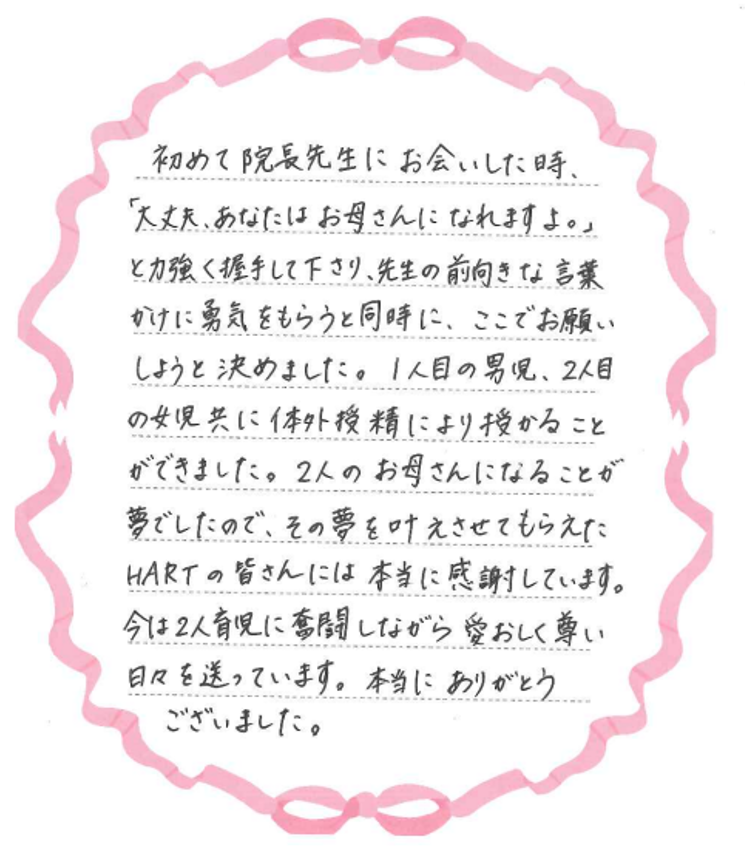 初めて院長先生にお会いした時、
「大丈夫、あなたはお母さんになれますよ。」
と力強く握手して下さり、先生の前向きな言葉
かけに勇気をもらうと同時に、ここでお願い
しようと決めました。1人目の男児、2人目
の女児共に体外授精により授かること
ができました。2人のお母さんになることが
夢でしたので、その夢を叶えさせてもらえた
HARTの皆さんには本当に感謝しています。
今は2人育児に奮闘しながら愛おしく尊い
日々を送っています。本当にありがとう
ございました。